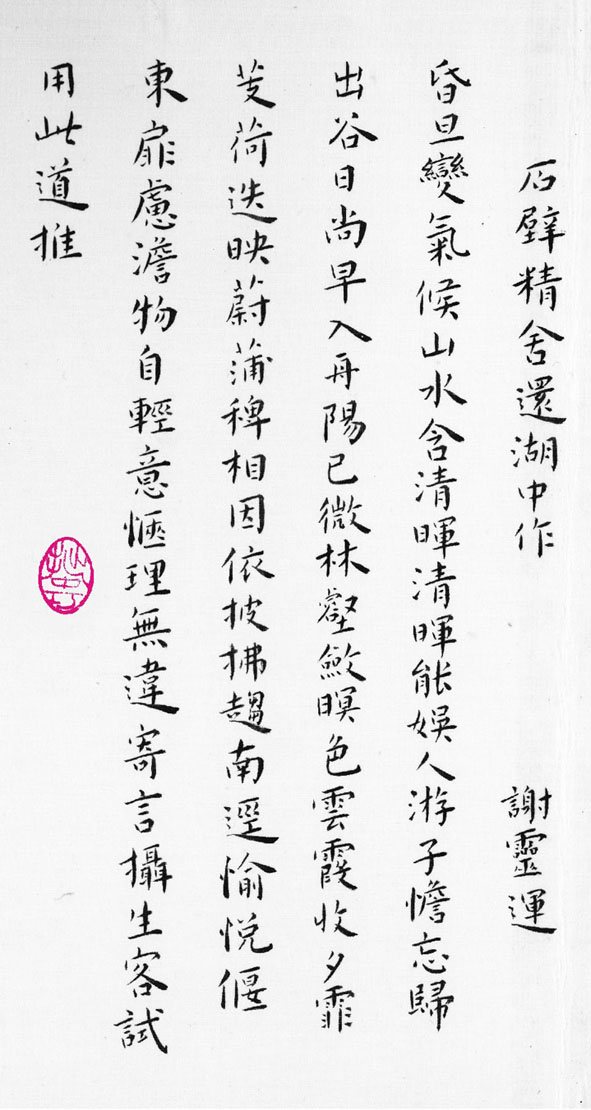 石壁精舍還湖中作 謝靈運
昏旦變氣候山水含清暉清暉能娛人游子憺忘歸
出谷日尚早入舟陽已微林壑斂暝色雲霞收夕霏
芰荷迭映蔚蒲稗相因依披拂趨南逕愉悅偃
東扉慮澹物自輕意愜理無違寄言攝生客試
用此道推